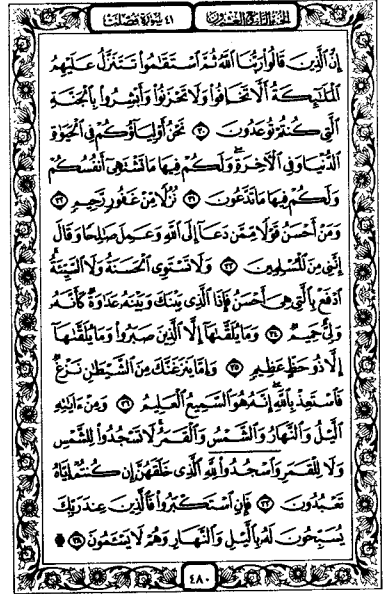 الجزء الرابع والعشرون ٤١ سورة فصلت
إِنَّ ٱلَّذِينَ قَالُوا۟ رَبُّنَا ٱللَّهُ ثُمَّ ٱسْتَقَـٰمُوا۟ تَتَنَزَّلُ عَلَيْهِمُ
ٱلْمَلَـٰٓئِكَةُ أَلَّا تَخَافُوا۟ وَلَا تَحْزَنُوا۟ وَأَبْشِرُوا۟ بِٱلْجَنَّةِ
ٱلَّتِى كُنتُمْ تُوعَدُونَ ٣٠ نَحْنُ أَوْلِيَآؤُكُمْ فِى ٱلْحَيَوٰةِ
ٱلدُّنْيَا وَفِى ٱلْـَٔاخِرَةِ ۖ وَلَكُمْ فِيهَا مَا تَشْتَهِىٓ أَنفُسُكُمْ
وَلَكُمْ فِيهَا مَا تَدَّعُونَ ٣١ نُزُلًا مِّنْ غَفُورٍ رَّحِيمٍ ٣٢
وَمَنْ أَحْسَنُ قَوْلًا مِّمَّن دَعَآ إِلَى ٱللَّهِ وَعَمِلَ صَـٰلِحًا وَقَالَ
إِنَّنِى مِنَ ٱلْمُسْلِمِينَ ٣٣ وَلَا تَسْتَوِى ٱلْحَسَنَةُ وَلَا ٱلسَّيِّئَةُ ۚ
ٱدْفَعْ بِٱلَّتِى هِىَ أَحْسَنُ فَإِذَا ٱلَّذِى بَيْنَكَ وَبَيْنَهُۥ عَدَٰوَةٌ كَأَنَّهُۥ
وَلِىٌّ حَمِيمٌ ٣٤ وَمَا يُلَقَّىٰهَآ إِلَّا ٱلَّذِينَ صَبَرُوا۟ وَمَا يُلَقَّىٰهَآ
إِلَّا ذُو حَظٍّ عَظِيمٍ ٣٥ وَإِمَّا يَنزَغَنَّكَ مِنَ ٱلشَّيْطَـٰنِ نَزْغٌ
فَٱسْتَعِذْ بِٱللَّهِ ۖ إِنَّهُۥ هُوَ ٱلسَّمِيعُ ٱلْعَلِيمُ ٣٦ وَمِنْ ءَايَـٰتِهِ
ٱلَّيْلُ وَٱلنَّهَارُ وَٱلشَّمْسُ وَٱلْقَمَرُ ۚ لَا تَسْجُدُوا۟ لِلشَّمْسِ
وَلَا لِلْقَمَرِ وَٱسْجُدُوا۟ لِلَّهِ ٱلَّذِى خَلَقَهُنَّ إِن كُنتُمْ إِيَّاهُ
تَعْبُدُونَ ٣٧ فَإِنِ ٱسْتَكْبَرُوا۟ فَٱلَّذِينَ عِندَ رَبِّكَ
يُسَبِّحُونَ لَهُۥ بِٱلَّيْلِ وَٱلنَّهَارِ وَهُمْ لَا يَسْـَٔمُونَ ۩ ٣٨
٤٨٠